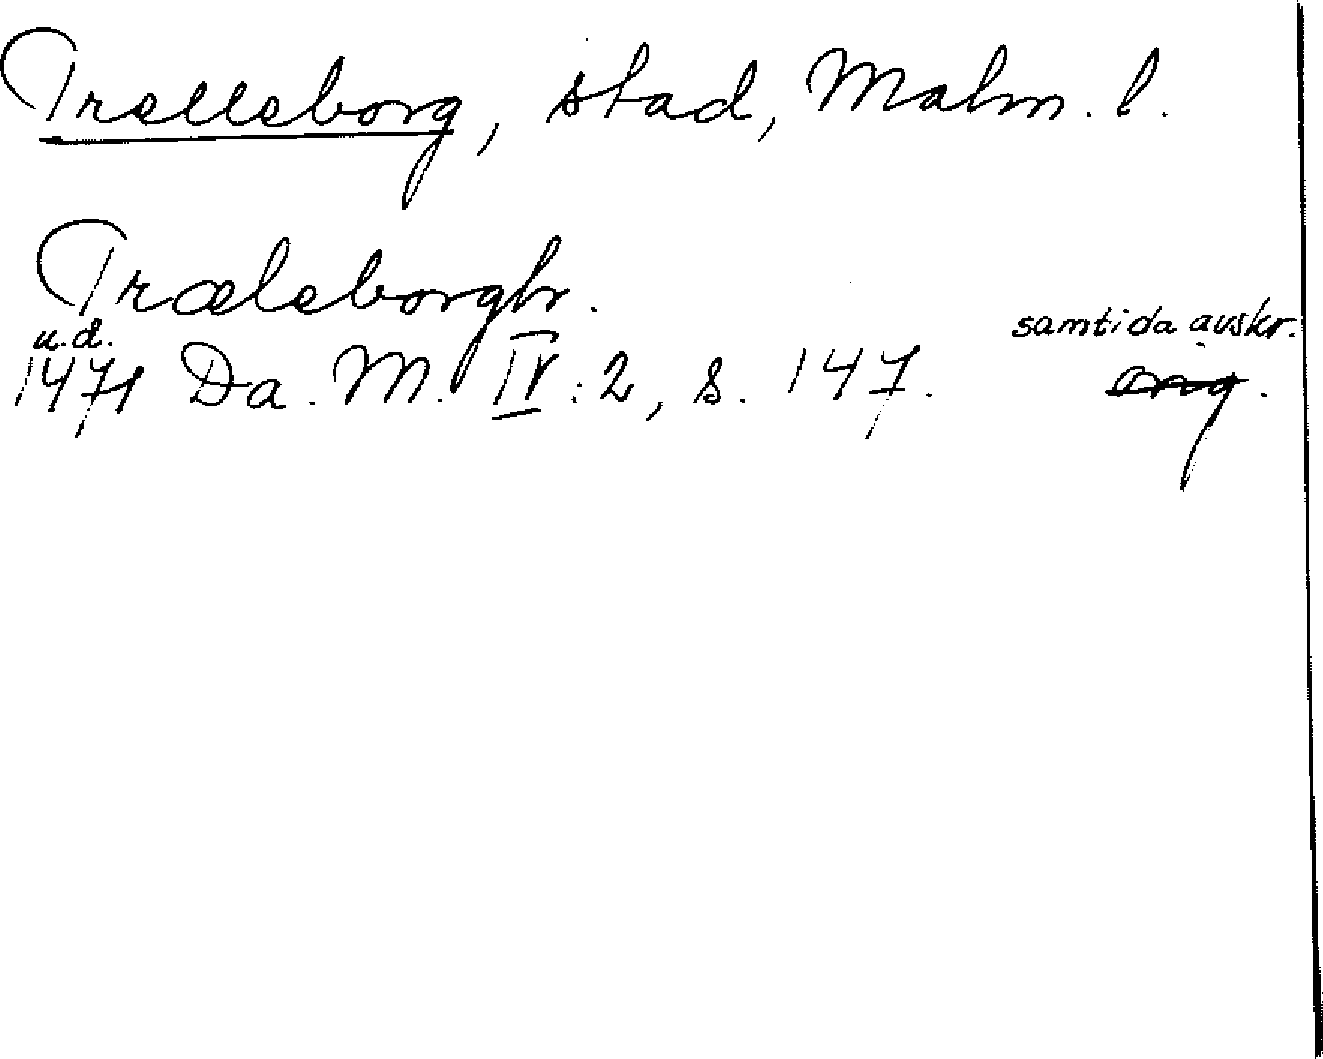 Trelleborg, stad, Malm. l.
Træleborgh.
u.d. samtida avskr.
1471 Da. M. IV:2, s. 147. orig.